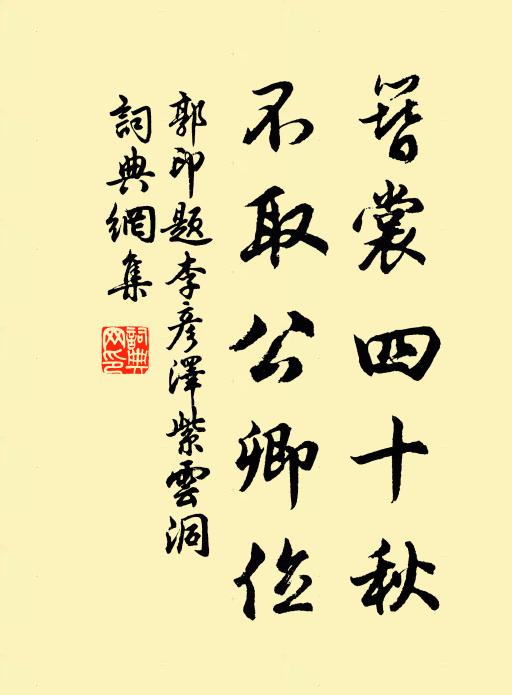 簪裳四十秋
不取公卿位
郭印題李彦澤紫雲洞
詞典網集
詞典网印